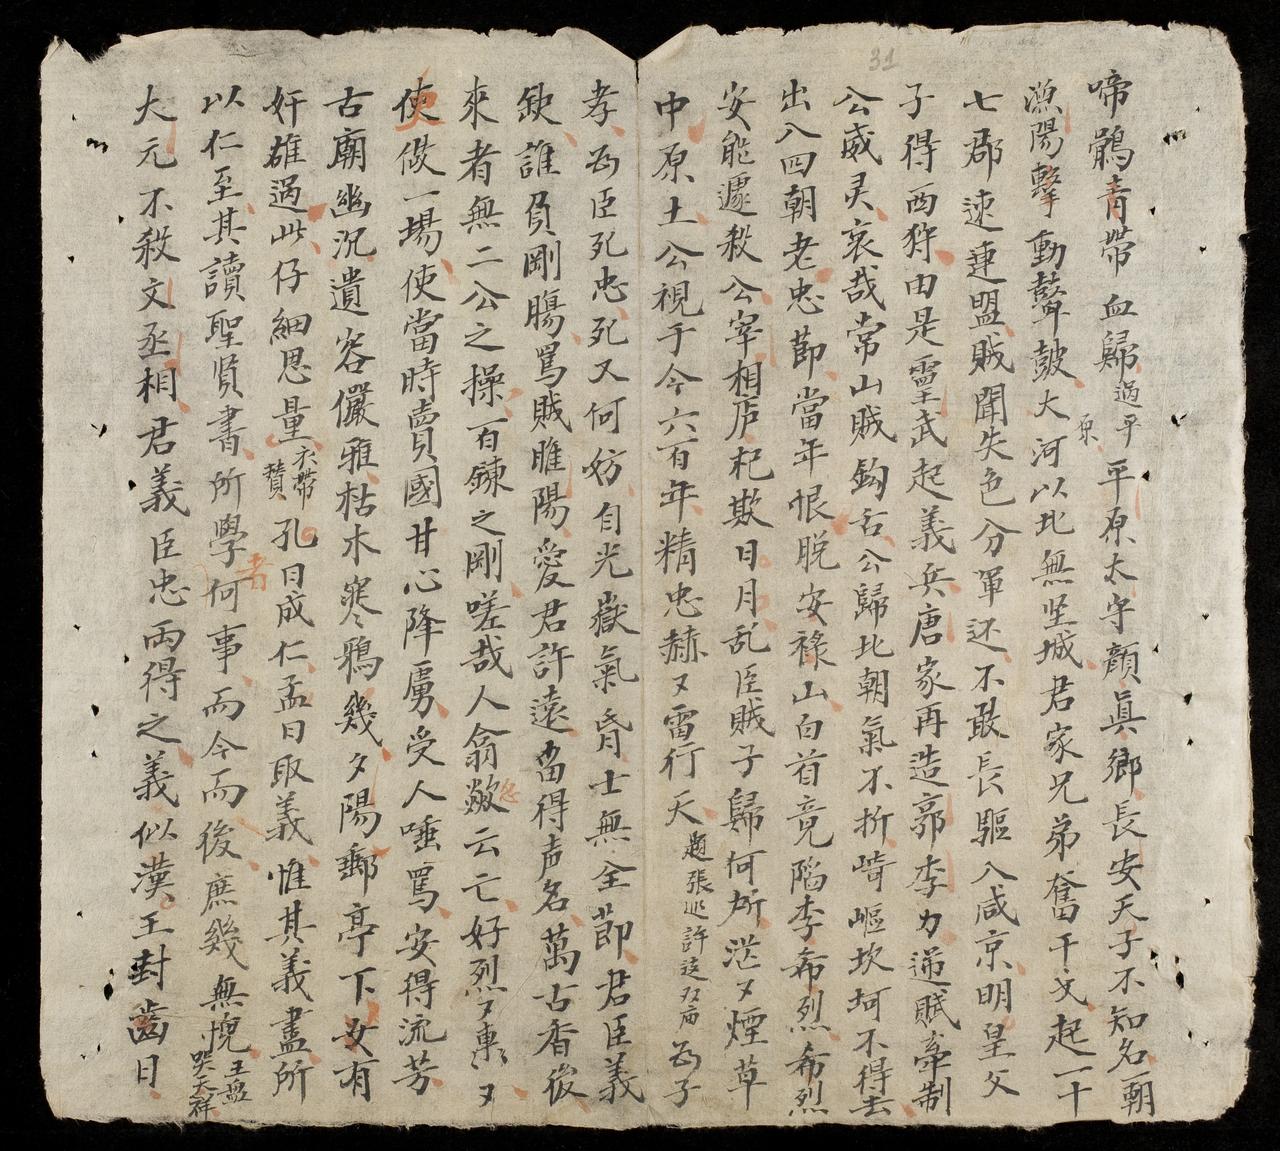 31
啼鵑青帶 血歸過平原 平原太守顏眞鄉長安天子不知名一朝
漁陽擊動鼙皷大河以北無坚城君家兄弟奮干戈起一十
七郡速連盟賊聞失色分軍还不敢長驅入咸京明皇父
子得西狩由是靈武起義兵唐家再造郭李力逆賊牽制
公威灵哀哉常山賊鈎舌公歸北朝氣不折崎嶇坎坷不得去
出入四朝老忠節當年恨脱安祿山白首竟陷李希烈希烈
安能遽殺公宰相庐杞欺日月乱臣賊子歸何所茫〻煙草
中原土公視于今六百年精忠赫〻雷行天題張巡許远双庙 为子
孝为臣死忠死又何妨自光嶽氣昏士無全節君臣義
欽誰負剛腸罵賊睢陽愛君許遠畱得声名萬古香後
來者無二公之操百鍊之剛嗟哉人翁歘忽云亡好烈〻轟〻
使做一場使當時賣國甘心降虜受人唾罵安得流芳
古廟幽沉遺容儼雅枯木寒鴉幾夕陽郵亭下女有
奸雄過此仔細思量衣帶贊孔曰成仁孟曰取義惟其義盡所
以仁至其讀聖賢書所學者何事而今而後庶幾無愧王盤哭天祥
大元不殺文丞相君義臣忠両得之義似漢王封齒日